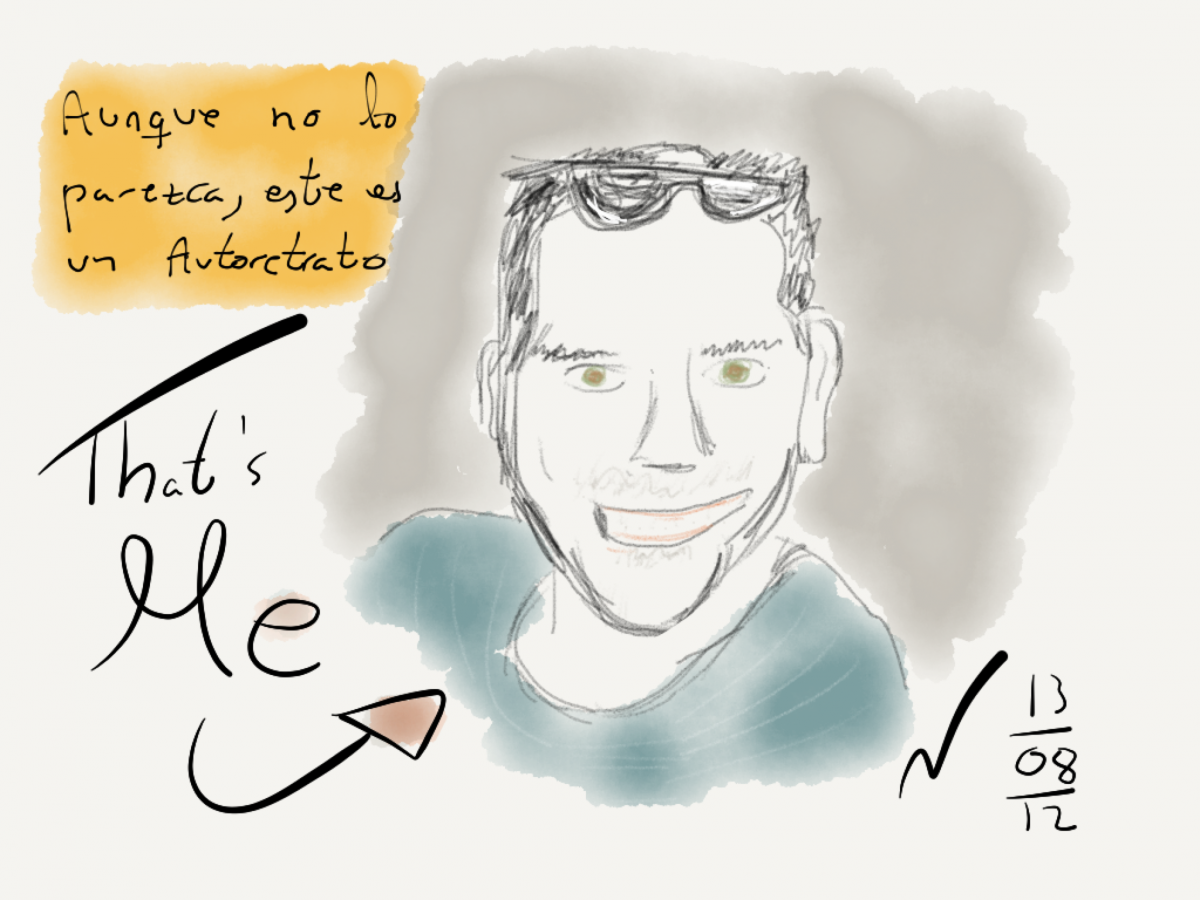 Aunque no lo
parezca, este es
un Autoretrato
That's
Me
13
08
12